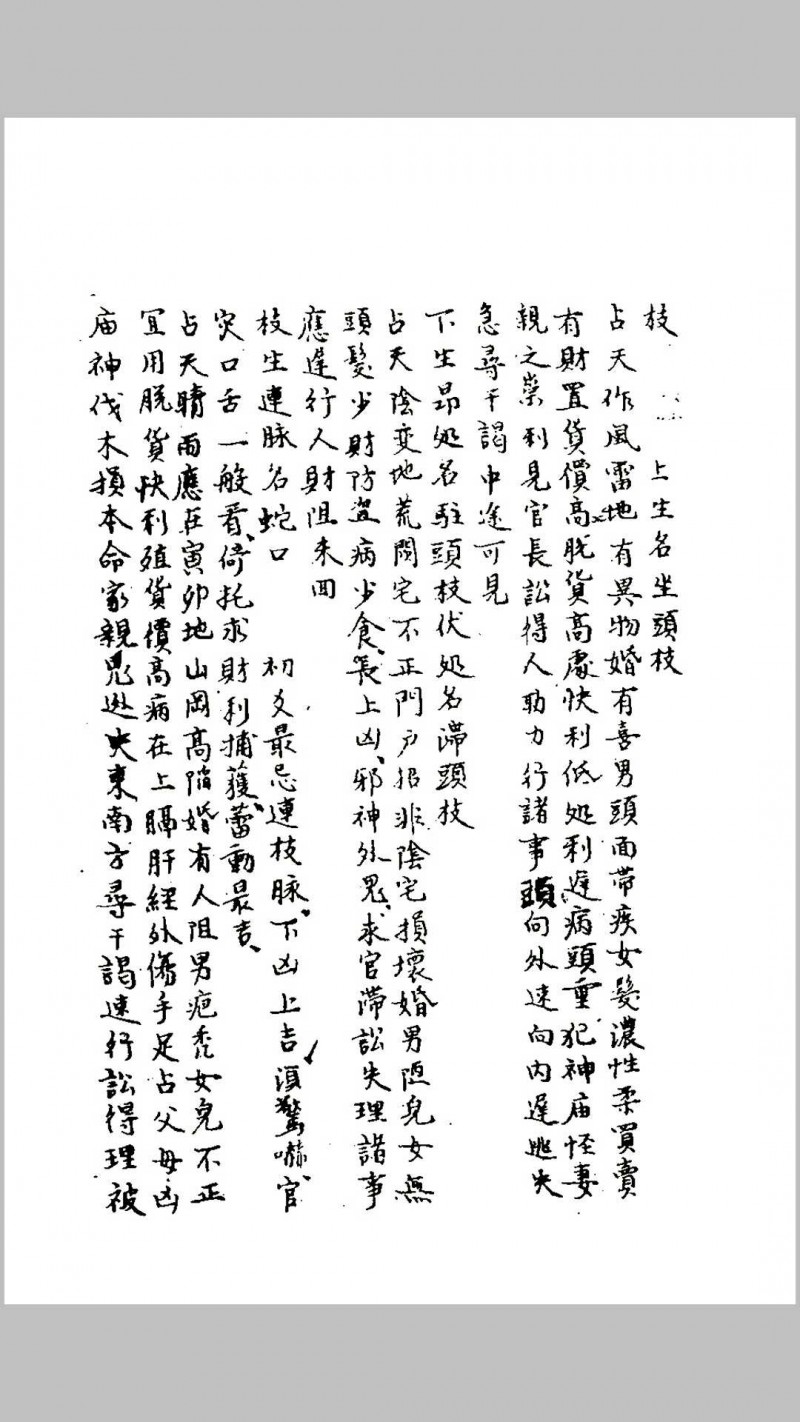 枝　　上生名坐頭枝
占天作風雷地有異物婚有喜男頭面帶疾女髮濃性柔買賣
有財置貨價高脱貨高處快利低処利遲病頭重犯神庙怪妻
親之業利見官長訟得人助力行諸事頭向外速向内遲逃失
急尋干謁中途可見
下生昂処名駐頭枝伏処名滯頭枝
占天陰变地荒閑宅不正門户招非陰宅損壞婚男陋皃女無
頭髮少財防盗病少食長上凶邪神外鬼求官滯訟失理諸事
應遲行人財阻未回
枝生連脉名蛇口　　初爻最忌連枝脉下凶上吉須驚嚇官
灾口舌一般看倚托求財利捕獲蕾動最吉
占天晴雨應在寅卯地山岡高陷婚有人阻男疤秃女皃不正
冝用脱貨快利殖貨價高病在上膈肝經外傷手足占父母凶
庙神伐木損本命家親鬼逃失東南方尋干謁速行訟得理被